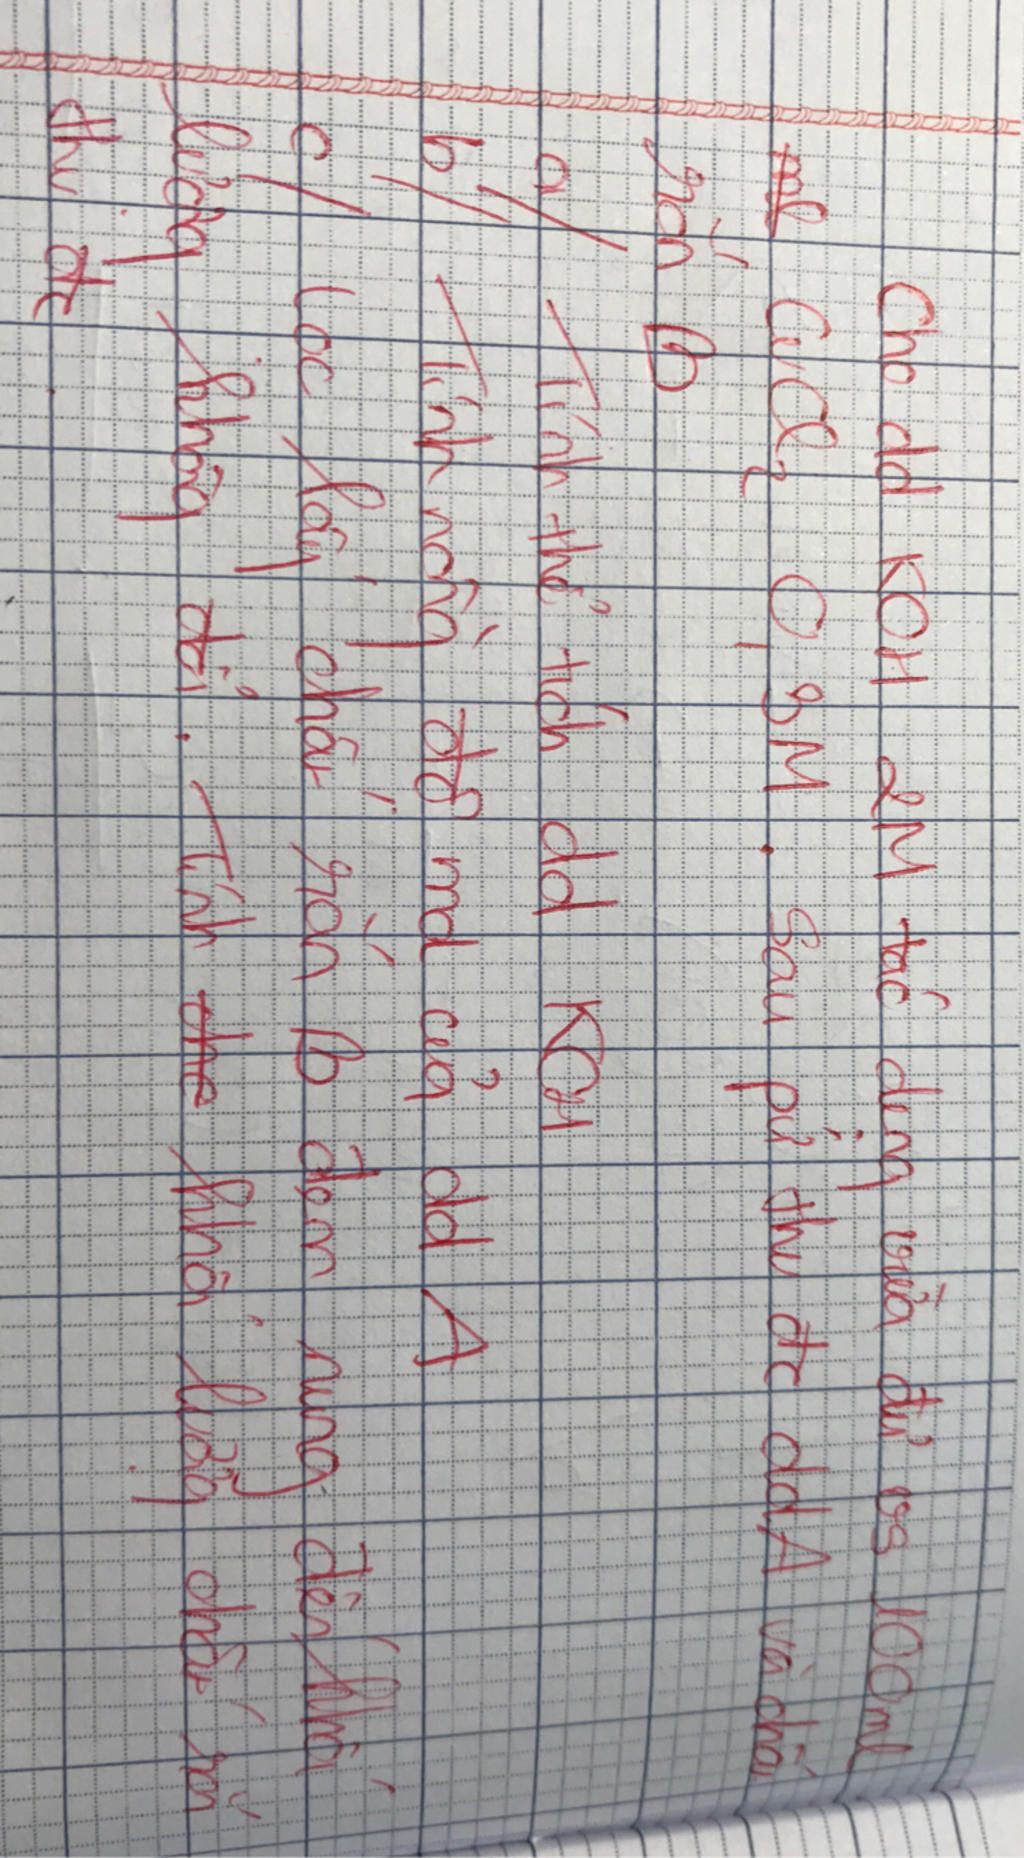 Cho dd KOH 2M tác dụng vừa đủ vs 100ml
CuCl2 0,3M. Sau pứ thu đc dd A và chất
rắn B
a/ Tính thể tích dd KOH
b/ Tính nồng độ mol của dd A
c/ Lọc lấy chất rắn B đem nung đến khối
lượng không đổi. Tính khối lượng chất rắn
thu đc.